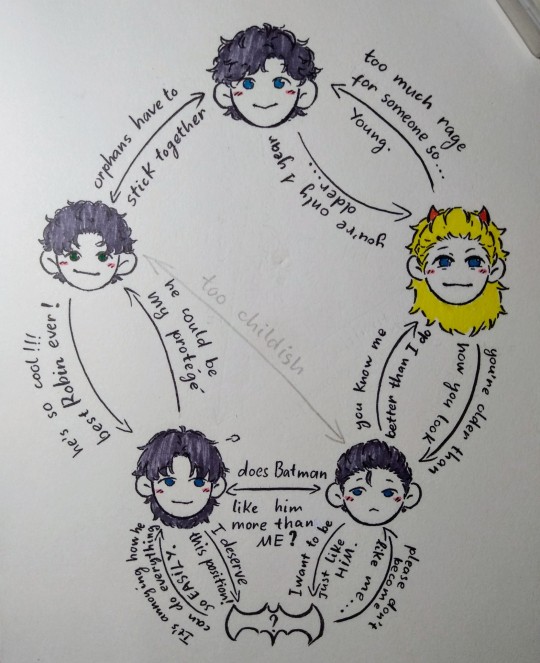 orphans have to
stick together
too much rage
for someone so...
Young.
you're only 1 year
older....
he's so cool!!!
best Robin ever!
he could be
my protégé
too childish
you know me
better than I do
you're older than
how you look
does Batman
like him
more than
ME?
It's annoying how he
can do everything
so EASILY.
I deserve
this position!
I want to be
just like
HIM.
please don't
become
like me...
?